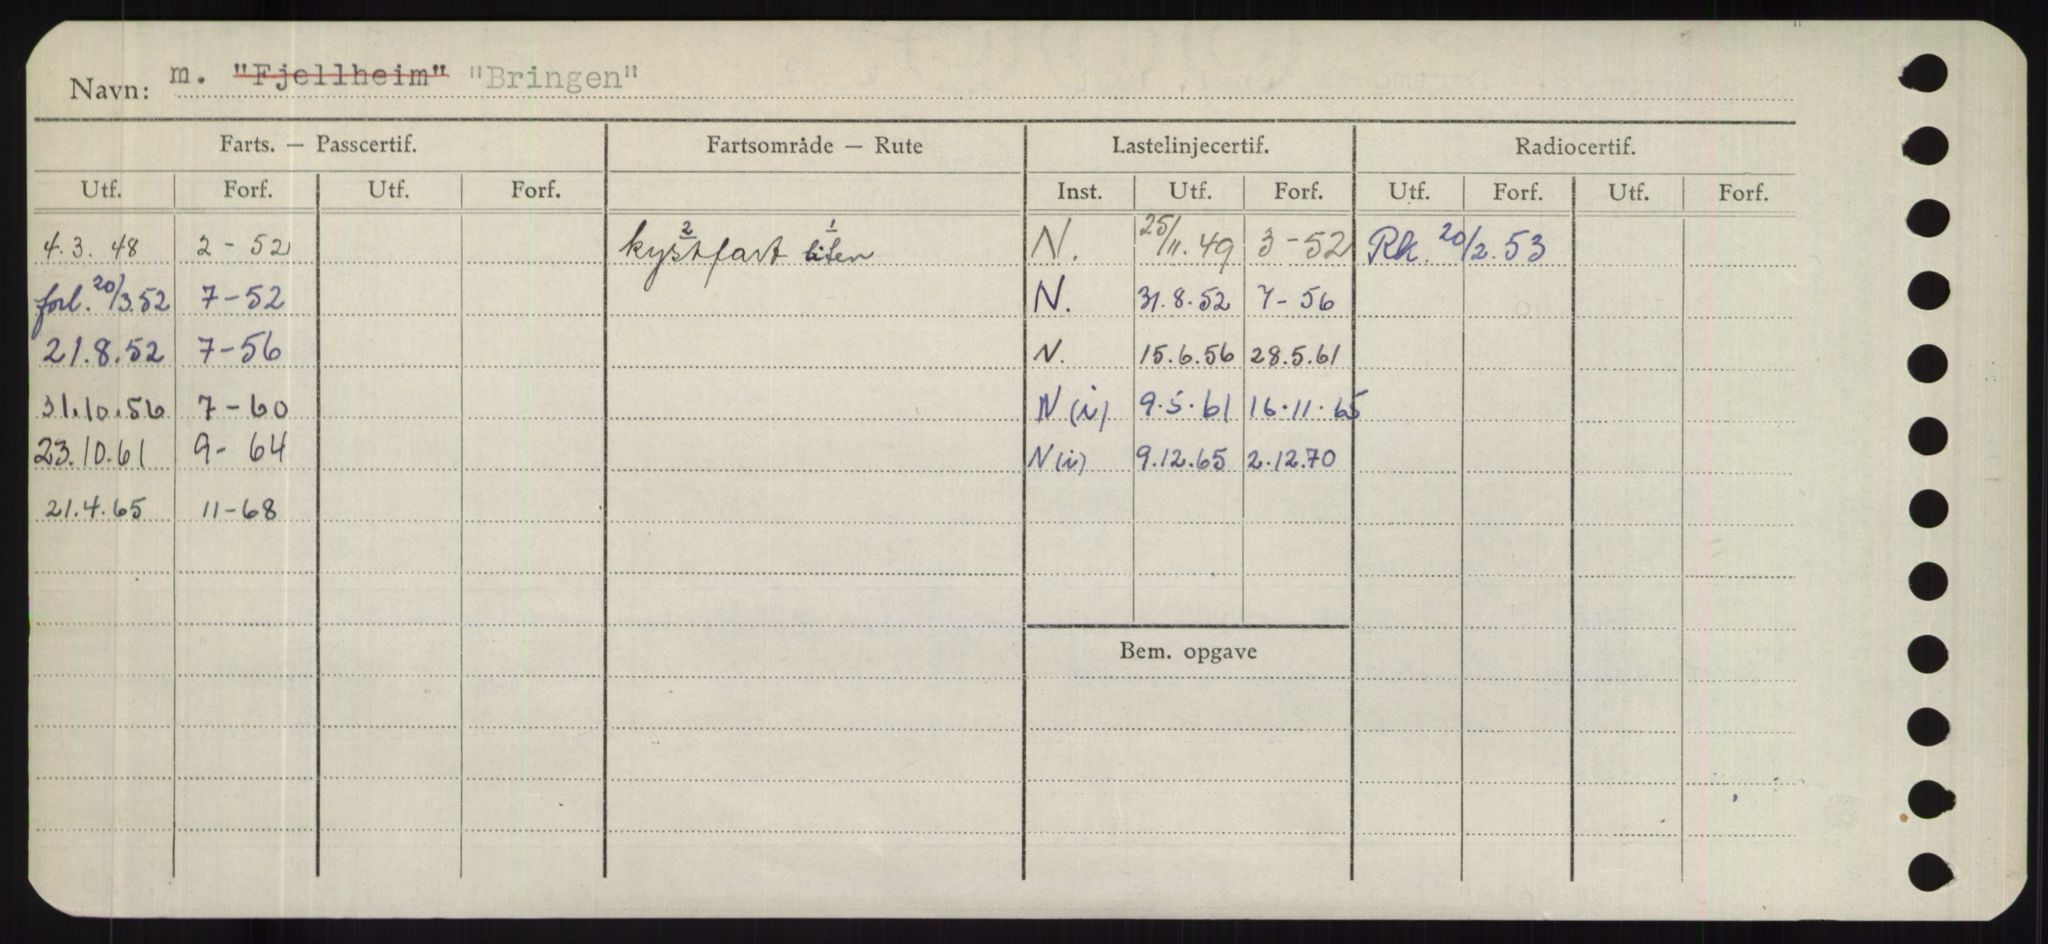 Navn: m. "Fjellheim" "Bringen"
Farts. — Passcertif. Fartsområde — Rute Lastelinjecertif. Radiocertif.
Utf. Forf. Utf. Forf. Inst. Utf. Forf. Utf. Forf. Utf. Forf.
2 1
4.3.48 2-52 kystfart liten N. 25/11.49 3-52 Rk. 20/2.53
forl. 20/3.52 7-52 N. 31.8.52 7-56
21.8.52 7-56 N. 15.6.56 28.5.61
31.10.56 7-60 N(i) 9.5.61 16.11.65
23.10.61 9-64 N(i) 9.12.65 2.12.70
21.4.65 11-68
Bem. opgave